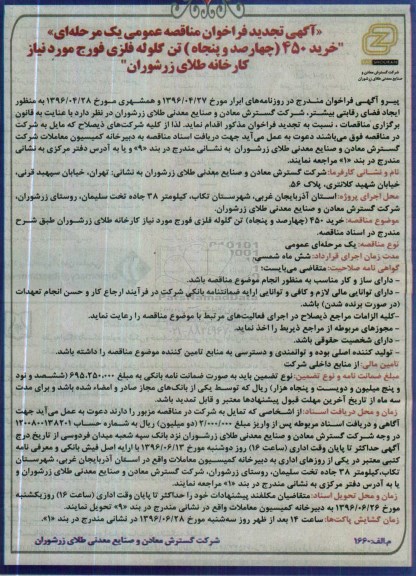 «آگهی تجدید فراخوان مناقصه عمومی یک مرحله‌ای»
"خرید ۴۵۰ (چهارصد و پنجاه) تن گلوله فلزی فورج مورد نیاز
کارخانه طلای زرشوران"
شرکت گسترش معادن و
صنایع معدنی طلای زرشوران
پیرو آگهی فراخوان مندرج در روزنامه‌های ابرار مورخ ۱۳۹۶/۰۴/۲۷ و همشهری مورخ ۱۳۹۶/۰۴/۲۸ به منظور
ایجاد فضای رقابتی بیشتر، شرکت گسترش معادن و صنایع معدنی طلای زرشوران در نظر دارد با عنایت به قانون
برگزاری مناقصات، نسبت به تجدید فراخوان مذکور اقدام نماید. لذا از کلیه شرکت‌های ذیصلاح که مایل به شرکت
در مناقصه فوق می‌باشند دعوت به عمل می‌آید جهت دریافت اسناد مناقصه به دبیرخانه کمیسیون معاملات شرکت
گسترش معادن و صنایع معدنی طلای زرشوران به نشانی مندرج در بند «۹» و یا به آدرس دفتر مرکزی به نشانی
مندرج در بند «۱۰» مراجعه نمایند.
نام و نشانی کارفرما: شرکت گسترش معادن و صنایع معدنی طلای زرشوران به نشانی: تهران، خیابان سپهبد قرنی،
خیابان شهید کلانتری، پلاک ۵۶.
محل اجرای پروژه: استان آذربایجان غربی، شهرستان تکاب، کیلومتر ۳۸ جاده تخت سلیمان، روستای زرشوران،
شرکت گسترش معادن و صنایع معدنی طلای زرشوران.
موضوع مناقصه: خرید ۴۵۰ (چهارصد و پنجاه) تن گلوله فلزی فورج مورد نیاز کارخانه طلای زرشوران طبق شرح
مندرج در اسناد مناقصه.
نوع مناقصه: یک مرحله‌ای عمومی
مدت زمان اجرای قرارداد: شش ماه شمسی
گواهی نامه صلاحیت: متقاضی می‌بایست:
- دارای ساز و کار مناسب به منظور انجام موضوع مناقصه باشد.
- دارای توانایی مالی لازم و کافی و توانایی ارایه ضمانتنامه بانکی شرکت در فرآیند ارجاع کار و حسن انجام تعهدات
(در صورت برنده شدن) باشد.
-کلیه الزامات مراجع ذیصلاح در اجرای فعالیت‌های مرتبط با موضوع مناقصه را رعایت نماید.
- مجوزهای مربوطه از مراجع ذیربط را اخذ نماید.
- دارای شخصیت حقوقی باشد.
- تولید کننده اصلی بوده و توانمندی و دسترسی به منابع تامین کننده موضوع مناقصه را داشته باشد.
تامین مالی: از منابع داخلی شرکت
مبلغ ضمانت نامه و نوع تضمین: نوع تضمین باید به صورت ضمانت نامه بانکی به مبلغ ۶۹۵.۲۵۰.۰۰۰ (ششصد و نود
و پنج میلیون و دویست و پنجاه هزار) ریال که توسط یکی از بانک‌های مجاز صادر و امضاء شده باشد و برای مدت
سه ماه از تاریخ آخرین مهلت قبول پیشنهادها معتبر و قابل تمدید باشد.
زمان و محل دریافت اسناد: از اشخاصی که تمایل به شرکت در مناقصه مزبور را دارند دعوت به عمل می‌آید جهت
آگاهی و دریافت اسناد مربوطه پس از واریز مبلغ ۲/۰۰۰/۰۰۰ (دو میلیون) ریال به شماره حساب
در وجه شرکت گسترش معادن و صنایع معدنی طلای زرشوران نزد بانک سپه شعبه میدان فردوسی از تاریخ درج
آگهی حداکثر تا پایان وقت اداری (ساعت ۱۶) روز دوشنبه مورخ ۱۳۹۶/۰۶/۱۳ با ارایه اصل فیش بانکی و معرفی نامه
کتبی معتبر در یکی از روزهای اداری به دبیرخانه کمیسیون معاملات واقع در استان آذربایجان غربی، شهرستان
تکاب، کیلومتر ۳۸ جاده تخت سلیمان، روستای زرشوران، شرکت گسترش معادن و صنایع معدنی طلای زرشوران و
یا به آدرس دفتر مرکزی به نشانی مندرج در بند «۱۰» مراجعه نمایند.
زمان و محل تحویل اسناد: متقاضیان مکلفند پیشنهادات خود را حداکثر تا پایان وقت اداری (ساعت ۱۶) روز یکشنبه
مورخ ۱۳۹۶/۰۶/۲۶ به دبیرخانه کمیسیون معاملات واقع در نشانی مندرج در بند «۹» تحویل نمایند.
زمان گشایش پاکت‌ها: ساعت ۱۴ بعد از ظهر روز سه‌شنبه مورخ ۱۳۹۶/۰۶/۲۸ در نشانی مندرج در بند «۱۰».
شرکت گسترش معادن و صنایع معدنی طلای زرشوران
م.الف: ۱۶۶۰